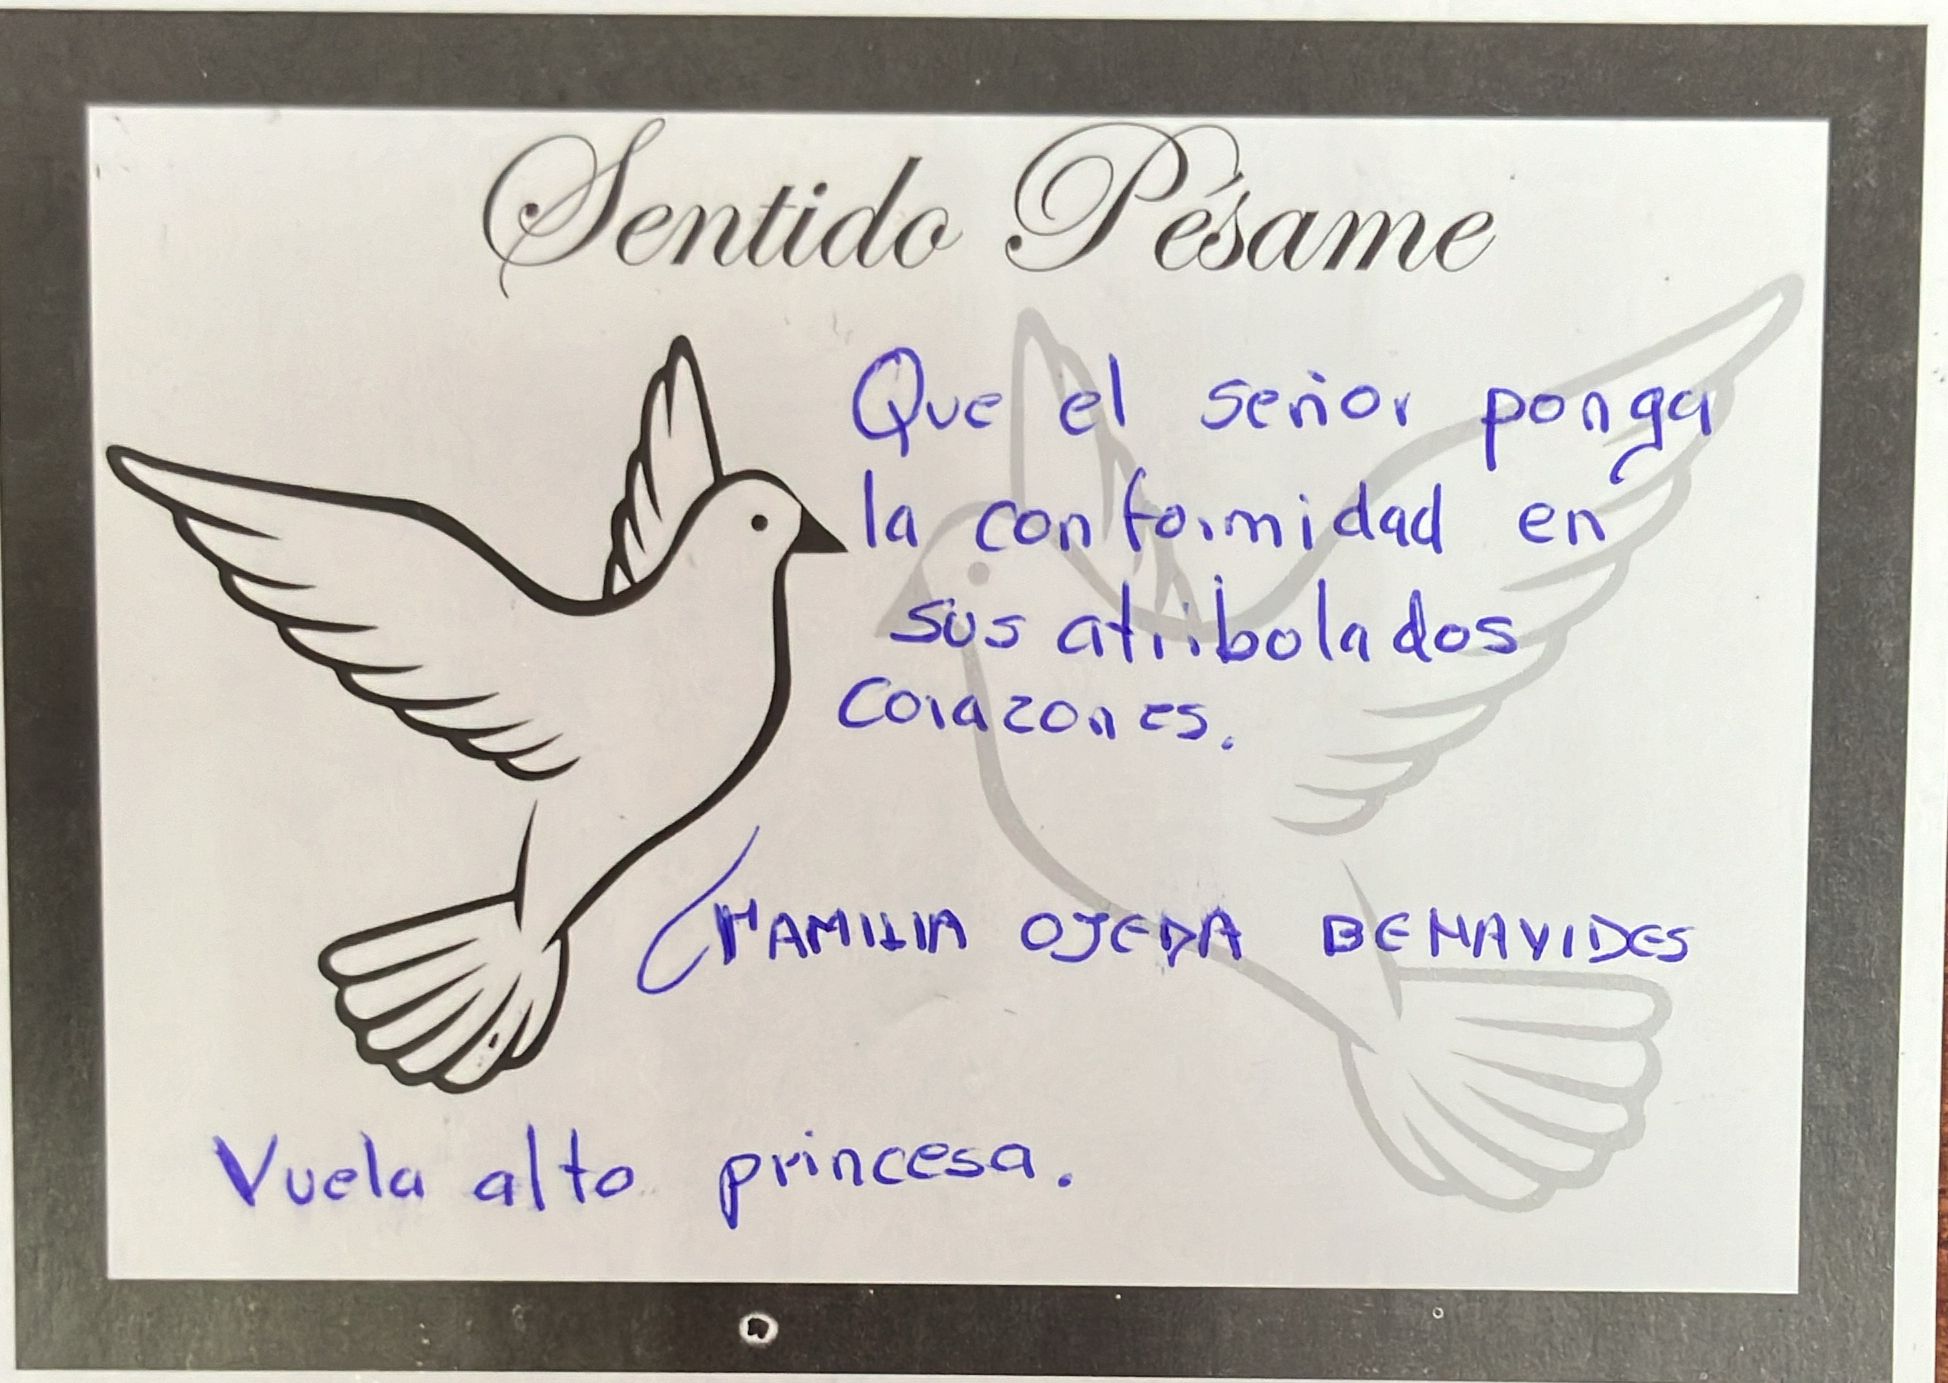 Sentido Pésame
Que el señor ponga
la conformidad en
sus atribolados
corazones.
FAMILIA OJEDA BENAVIDES
Vuela alto princesa.